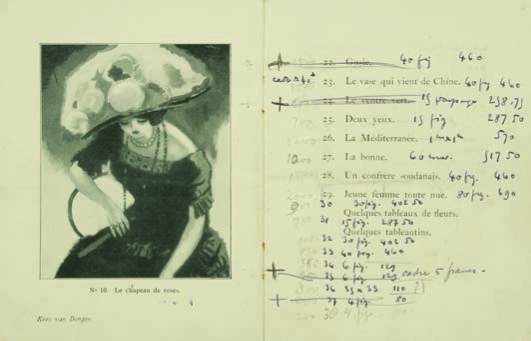 Nº 10. Le chapeau de roses.
Kees van Dongen.
+ 22. 40 fig 460
cadre 40 23. Le vase qui vient de Chine. 40 fig 460
+ 24. Le ventre vert. 15 258.75
25. Deux yeux. 15 fig 287 50
26. La Méditerranée. 570
27. La bonne. 60 517 50
28. Un confrère soudanais. 40 fig. 460
29. Jeune femme toute nue. 80 fig. 690
30 30 fig. 402 50
Quelques tableaux de fleurs.
31 15 fig. 287 50
Quelques tableautins.
32 30 fig 402 50
33 40 fig. 460
34 6 fig. 129
35 6 fig. 129 cadre 5 francs -
36 33 x 33 110
+ 37 4 fig. 80